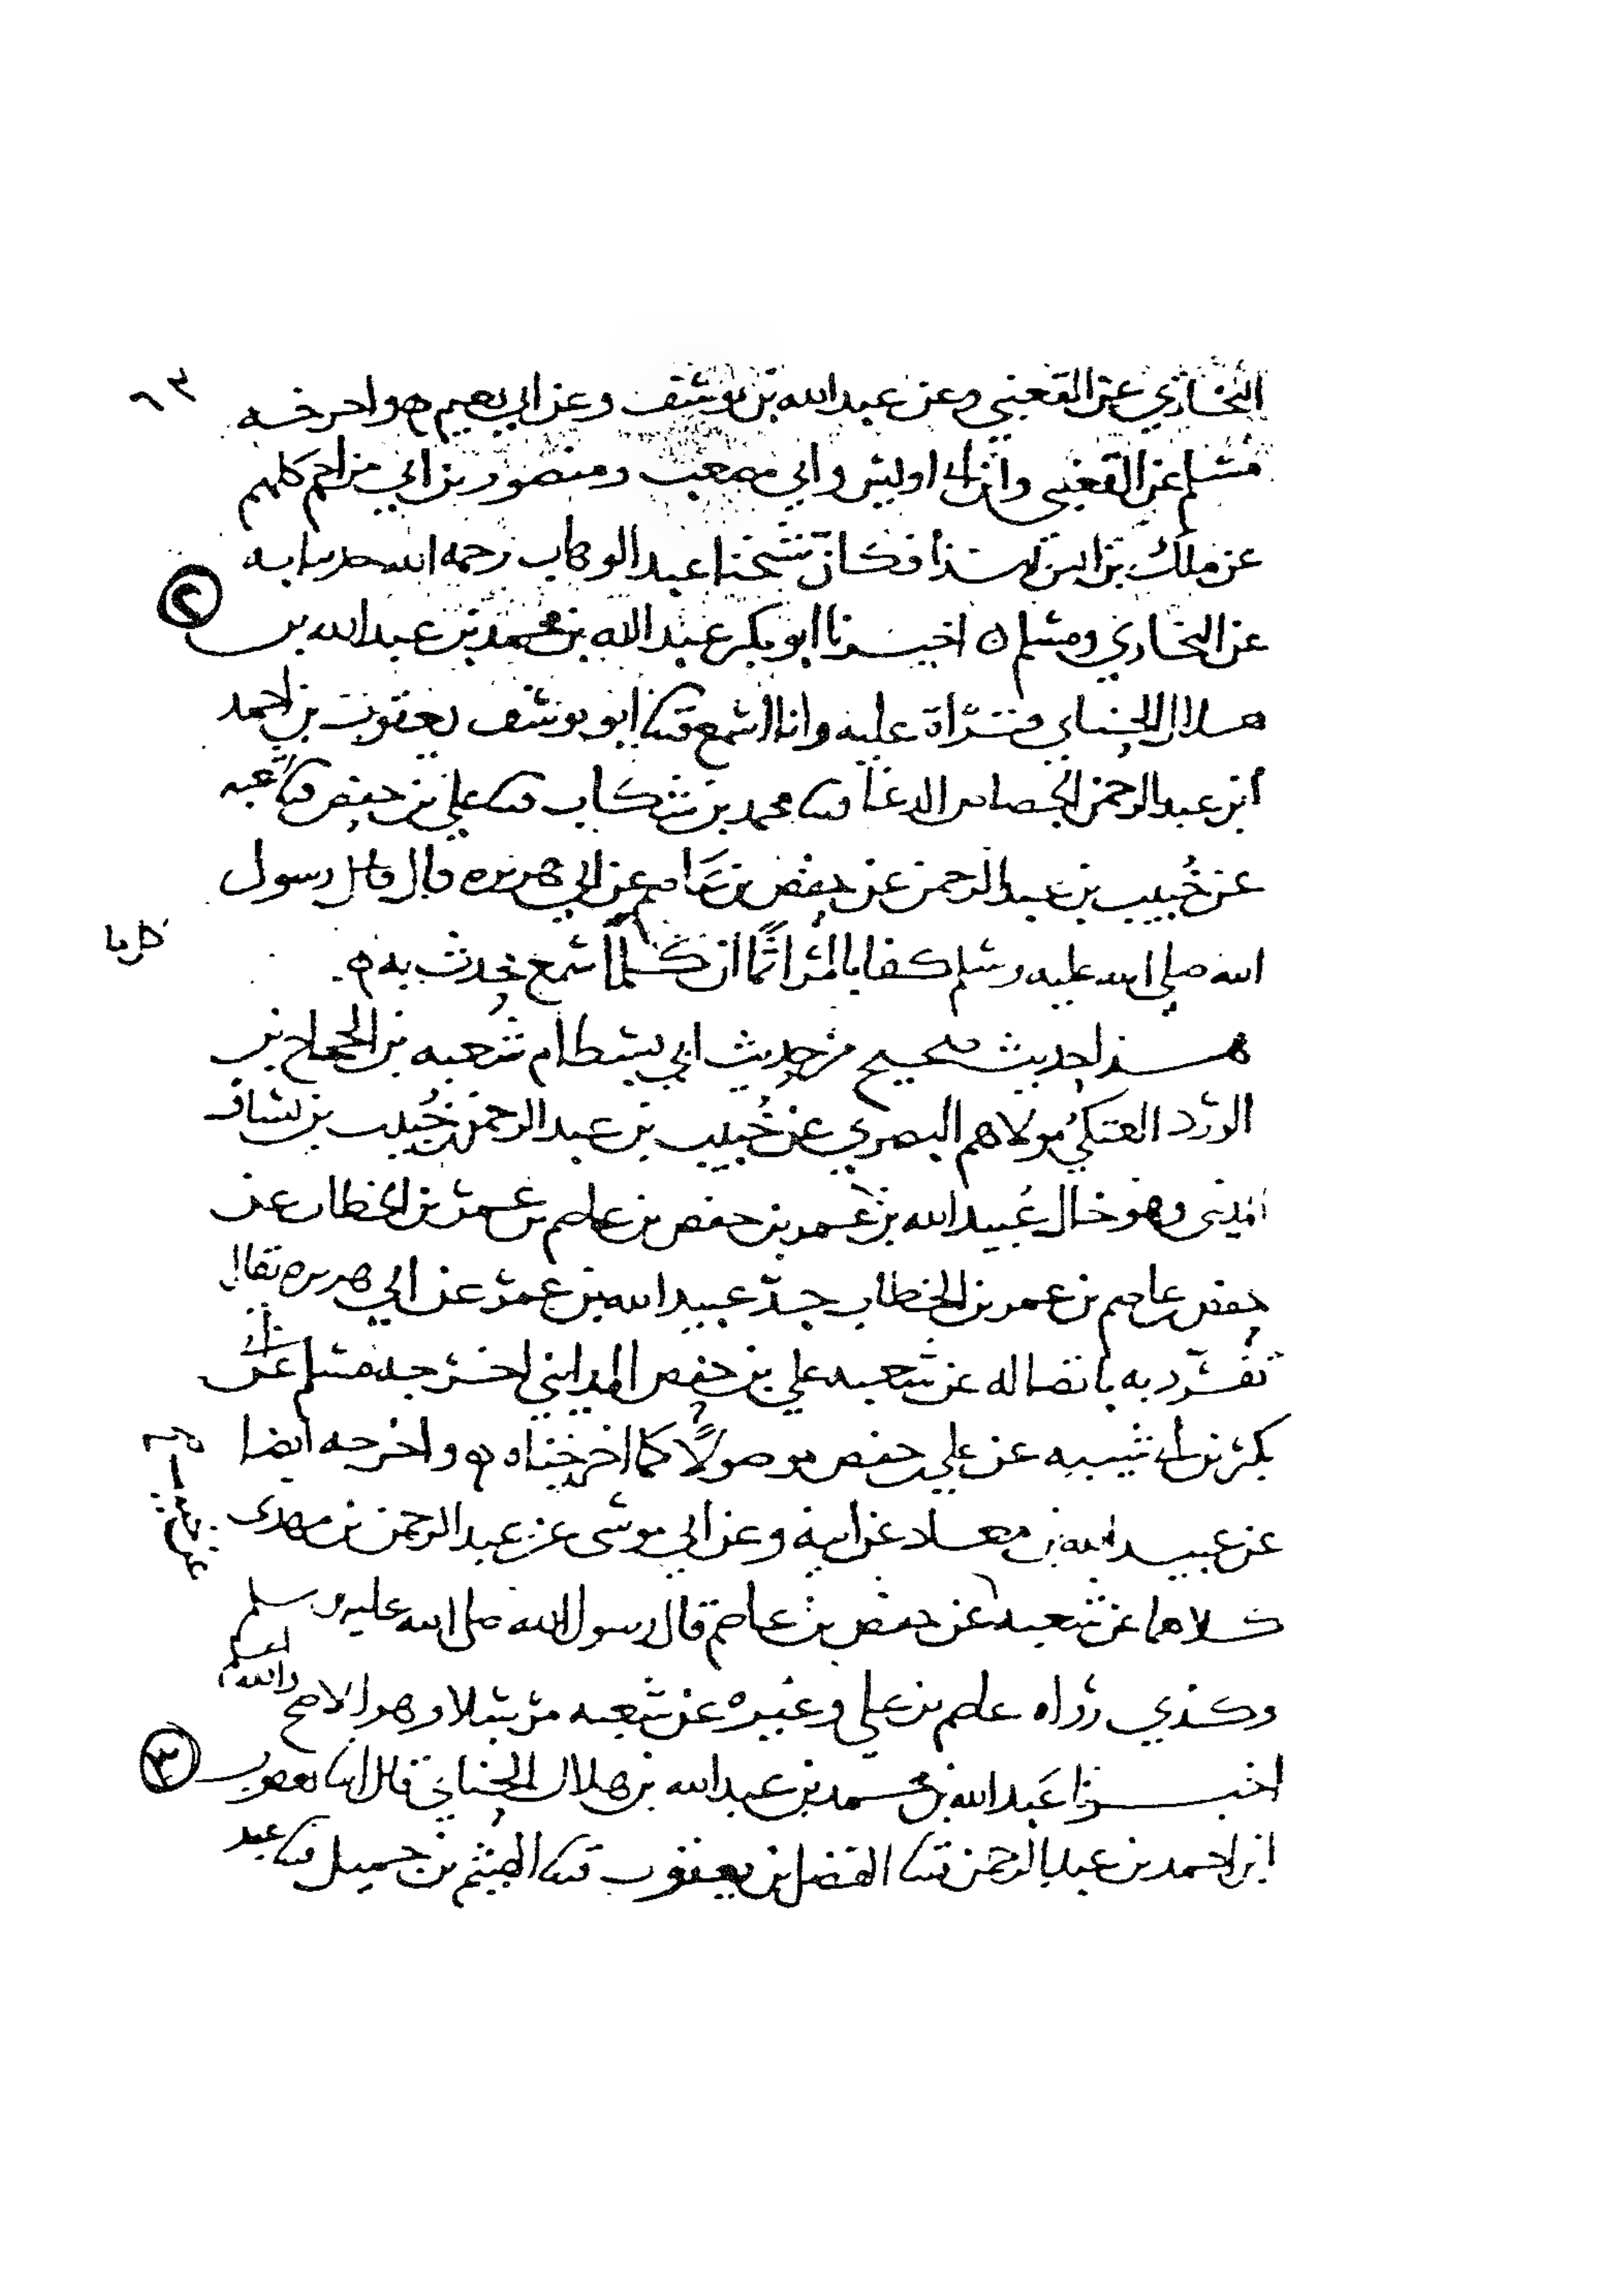 ٦٣
البخاري عن القعنبي وعن عبد الله بن يوسف وعن ابي نعيم ه واخرجه
مسلم عن القعنبي وابن ابي اويس وابي مصعب ومنصور بن ابي مزاحم كلهم
عن ملك بن انس فكان شيخنا عبد الوهاب رحمه الله حدثنا به
عن البخاري ومسلم ه اخبرنا ابو بكر عبد الله بن محمد بن عبد الله بن
٢
هلال الحنائي قراة عليه وانا اسمع قثنا ابو يوسف يعقوب بن احمد
ابن عبد الرحمن الجصاص الدعا قثنا محمد بن شكاب قثنا علي بن حفص قثنا شعبه
عن خُبيب بن عبد الرحمن عن حفص بن عَاصم عن ابي هريره قال قال رسول
الله صلى الله عليه وسلم كفا بالمرء اثمًا ان بكلما سمع يحدث به ه
كل ما
هذا حديث صحيح من حديث ابي بسطام شعبه بن الحجاج بن
الورد العتكي مولاهم البصري عن خُبيب بن عبد الرحمن بن خُبيب بن يساف
المديني وهو خال عُبيد الله بن عمر بن حفص بن عاصم بن عمر بن الخطاب عن
حفص بن عاصم بن عمر بن الخطاب جدّ عبيد الله بن عمر عن ابي هريره يقال
تفرّد به باتصاله عن شعبه علي بن حفص المدايني اخرجه مسلم عن ابي
بكر بن ابي شيبه عن علي بن حفص موصولًا كما اخرجناه ه واخرجه ايضا
عن عبيد الله بن معاد عن ابيه وعن ابي موسى عن عبد الرحمن بن مهدى
كلاهما عن شعبه عن حفص بن عاصم قال رسول الله صلى الله عليه وسلم
وكذي رواه عاصم بن علي وغيره عن شعبه مرسلا وهو الاصح والله اعلم
اخبرنا عبد الله بن محمد بن عبد الله بن هلال الحنائي قال ابنا يعقوب
٣
ابن احمد بن عبد الرحمن قثنا الفضل بن يعقوب قثنا الهيثم بن جميل قثنا عبد